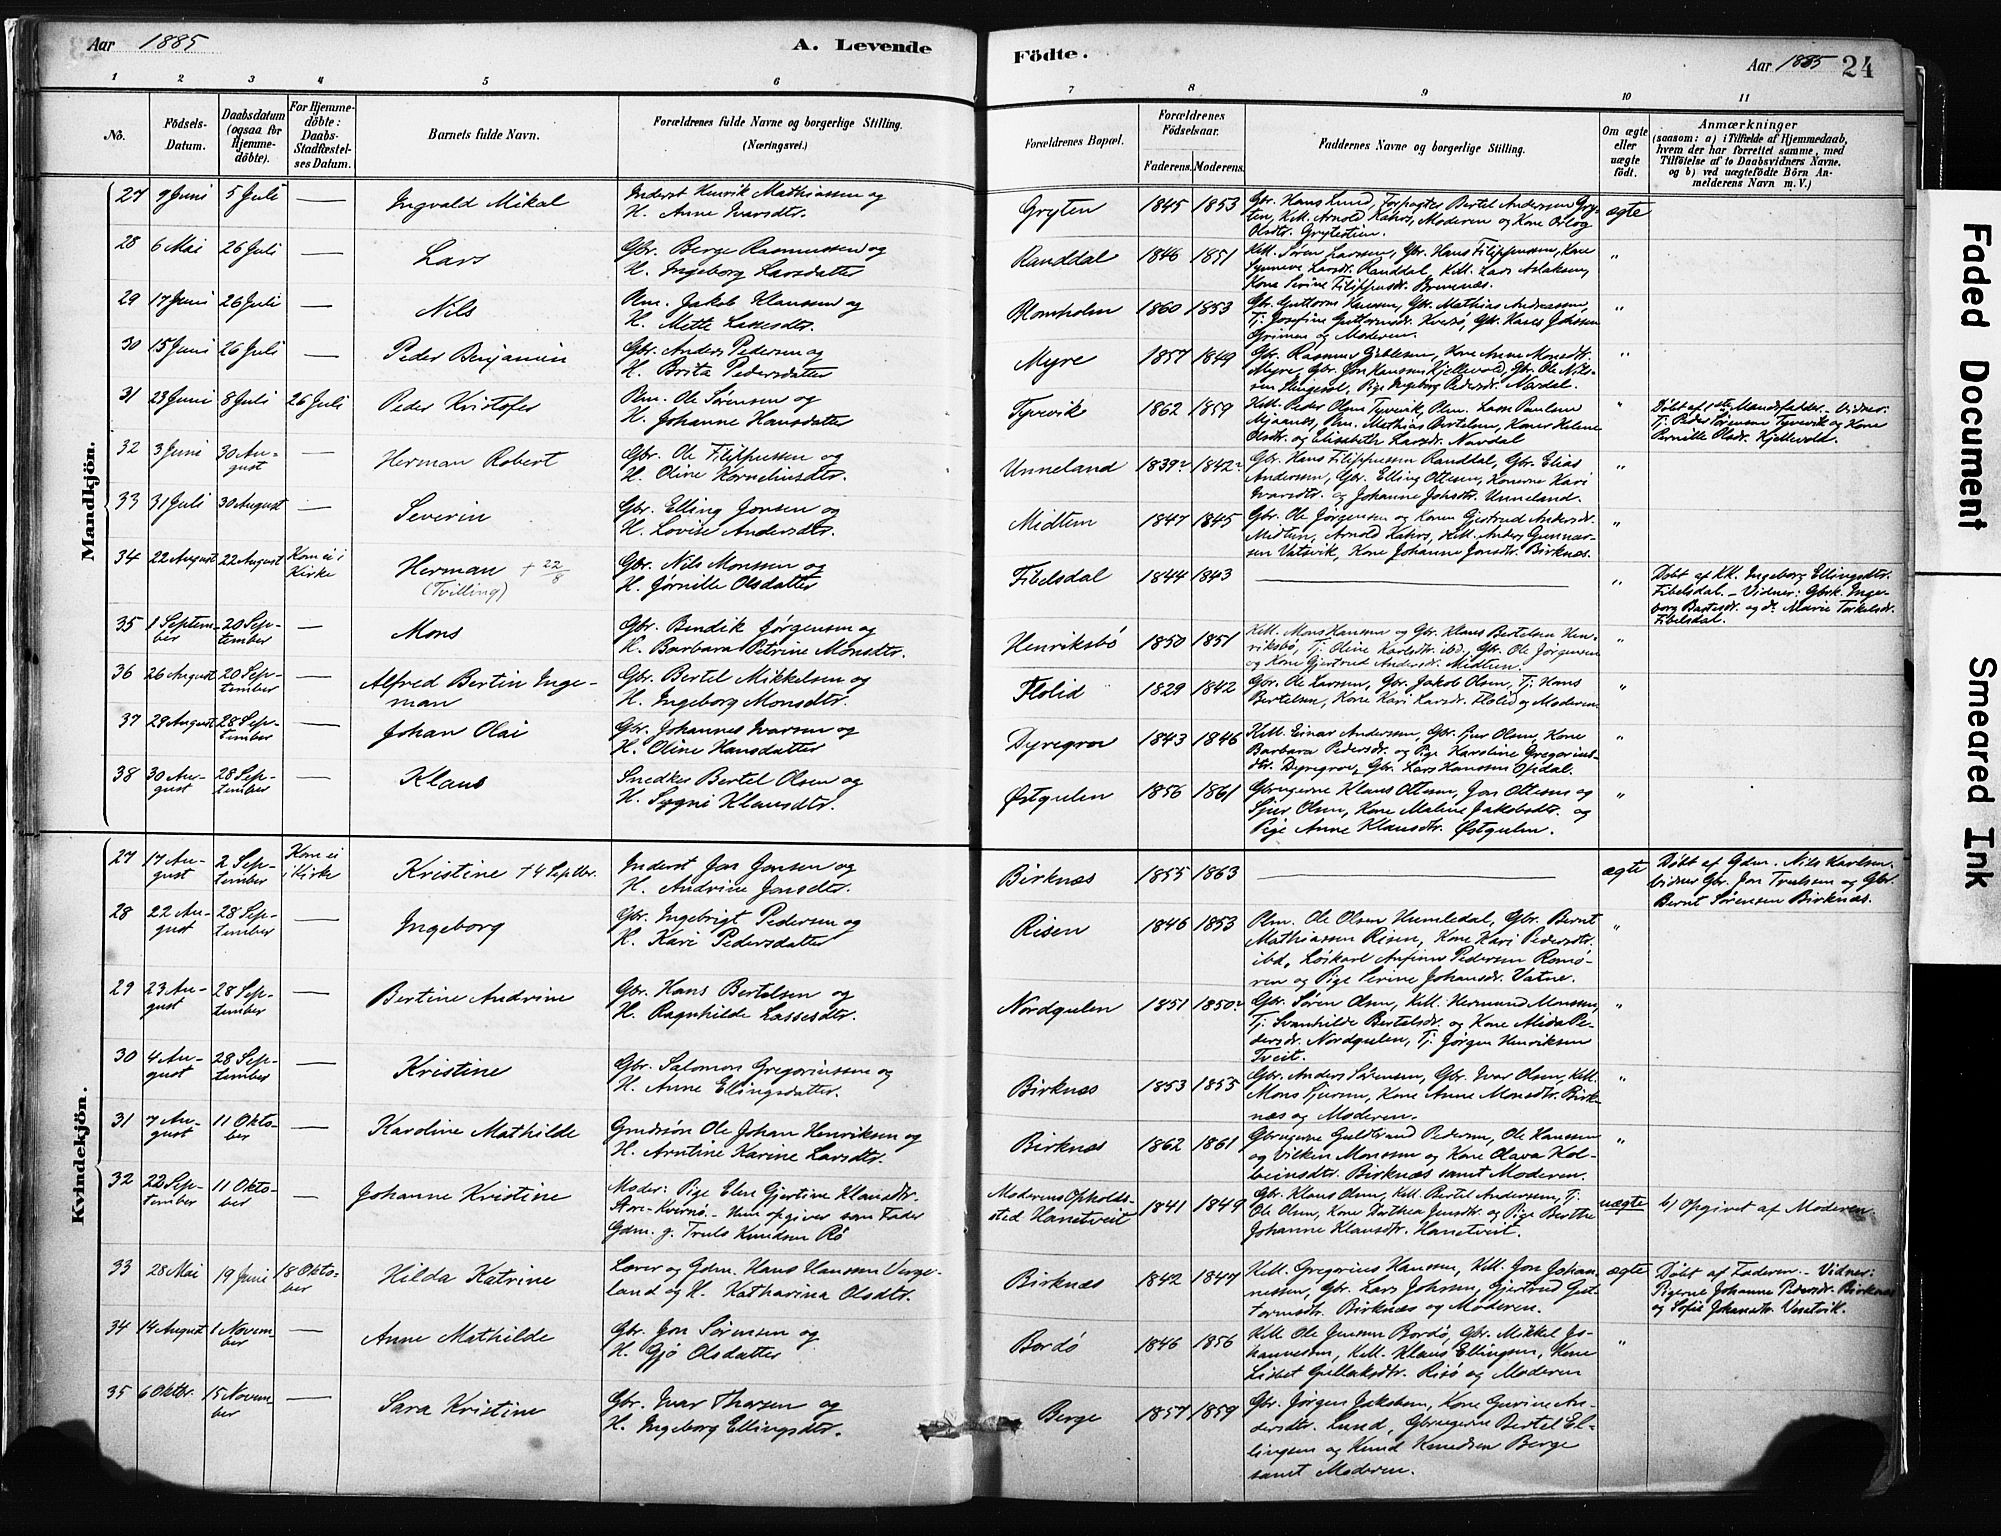 Aar 1885
A. Levende Födte.
Aar 1885 24
1 2 3 4 5 6 7 8 9 10 11
No.
Födsels-Datum.
Daabsdatum (ogsaa for Hjemme-döbte).
For Hjemme-döbte: Daabs-Stadfæstel-ses Datum.
Barnets fulde Navn.
Forældrenes fulde Navne og borgerlige Stilling. (Næringsvei.)
Forældrenes Bopæl.
Forældrenes Födselsaar.
Faderens. Moderens.
Faddernes Navne og borgerlige Stilling.
Om ægte eller uægte födt.
Anmærkninger (saasom: a) i Tilfælde af Hjemmedaab, hvem der har forrettet samme, med Tilföielse af to Daabsvidners Navne. og b) ved uægtefödte Börn An-melderens Navn m. V.)
Mandkjön.
27 9 Juni 5 Juli — Ingvald Mikal
Inderst Henrik Mathiassen og
H. Anne Ivarsdtr.
Gryten 1845 1853
Gbr. Hans Lund, Forpagter Bertel Anderssen Gry-
ten, Kell. Arnold Kahrs, Moderen og Kone
Olsdtr. Grytestien.
ægte
28 6 Mai 26 Juli — Lars
Gbr. Berge Rasmussen og
H. Ingeborg Larsdatter
Randdal 1846 1851
Kell. Søren Larssen, Gbr. Hans Filippussen, Kone
Synneve Larsdr. Randdal, Kell. Lars Aslaksen,
Kone Serine Filippusdr. Bremnes.
"
29 17 Juni 26 Juli — Nils
Plm. Jakob Klaussen og
H. Mette Lassesdtr.
Blomholm 1860 1853
Gbr. Guttorm Hanssen, Gbr. Mathias Andreassen,
Tj. Josefine Guttormsdr. Kversø, Gbr. Hans Johssen
Grimen og Moderen.
"
30 15 Juni 26 Juli — Peder Benjamin
Gbr. Anders Pedersen og
H. Brita Pedersdatter
Myre 1857 1849
Gbr. Rasmus Gablesen, Kone Anne Monsdtr.
Myre, Gbr. Jon Hanssen Kjellevold, Gbr. Ole Nils-
sen Slengesol, Pige Ingeborg Pedersdr. Nordal.
"
31 23 Juni 8 Juli 26 Juli Peder Kristofer
Plm. Ole Sørensen og
H. Johanne Hansdatter
Tyvevik 1862 1859
Kell. Peder Olsen Tyvevik, Plm. Lars Paulsen
Mjaanes, Plm. Mathias Bertelsen, Koner Helene
Olsdtr. og Elisabeth Larsdr. Nordal
"
Døbt af 1ste Mandsfadder. – Vidner:
Tj. Peder Sørensen Tyvevik og Kone
Pernille Olsdr. Kjellevold.
32 3 Juni 30 Au-
gust — Herman Robert
Gbr. Ole Filippussen og
H. Oline Korneliusdtr.
Unneland 1839? 1842?
Gbr. Hans Filippussen Randdal, Gbr. Elias
Anderssen, Gbr. Elling Ottesen, Konerne Kari
Ivarsdtr. og Johanne Johsdtr. Unneland.
"
33 31 Juli 30 August — Severin
Gbr. Elling Jonsen og
H. Lovise Andersdtr.
Midtun 1847 1845
Gbr. Ole Jørgensen og Konen Gjertrud Andersdr.
Midtun, Arnold Kahrs, Kell. Anders Gunnar-
sen Vatsvik, Kone Johanne Jonsdtr. Birknæs.
"
34 22 August 22 August Kom ei i
Kirke
Herman + 22/8
(Tvilling)
Gbr. Nils Monssen og
H. Jørnille Olsdatter
Fibelsdal 1844 1843
—
"
Døbt af KK. Ingeborg Ellingsdtr.
Fibelsdal. – Vidner: Gbrk. Inge-
borg Baardsdr. og dr. Marie Torkelsdr.
Fibelsdal.
35 1 Septem-
ber 20 Sep-
tember — Mons
Gbr. Bendik Jørgensen og
H. Barbara Petrine Monsdtr.
Henriksbø 1850 1851
Kell. Mons Hanssen og Gbr. Klaus Bertelsen Hen-
riksbø, Tj. Oline Karlsdtr. ibd., Gbr. Ole Jørgensen
og Kone Gjertrud Andersdr. Midtun.
"
36 26 August 20 Sep-
tember — Alfred Bertin Inge-
man
Gbr. Bertel Mikkelsen og
H. Ingeborg Monsdtr.
Flolid 1829 1842
Gbr. Ole Larssen, Gbr. Jakob Olsen, Tj. Hans
Bertelsen, Kone Kari Larsdr. Flolid og Moderen
"
37 29 August 28 Sep-
tember — Johan Olai
Gbr. Johannes Ivarsen og
H. Oline Hansdatter
Dyregrov 1843 1846
Kell. Einar Anderssen, Gbr. Sjur Olsen, Kone
Barbara Pedersdr. og Pige Karoline Gregorius-
dtr. Dyregrov, Gbr. Lars Hanssen Opdal.
"
38 30 Au-
gust 28 Sep-
tember — Klaus
Snedker Bertel Olsen og
H. Sygni Klausdtr.
Østgulen 1856 1861
Gbrugerne Klaus Ottesen, Jon Ottesen og
Sjur Olsen, Kone Maline Jakobsdtr. og
Pige Anne Klausdtr. Østgulen.
"
Kvindekjön.
27 17 Au-
gust 2 Sep-
tember Kom ei
i Kirke
Kristine +4 Septbr.
Inderst Jon Jonsen og
H. Andrine Jonsdtr.
Birknæs 1855 1863
—
ægte
Døbt af Gdm. Nils Karlsen.
Vidner Gbr. Jon Trulsen og Gbr.
Bernt Sørensen Birknæs.
28 22 Au-
gust 28 Sep-
tember — Ingeborg
Gbr. Ingebrigt Pedersen og
H. Kari Pedersdatter
Risen 1846 1853
Plm. Ole Olsen Humledal, Gbr. Bernt
Mathiassen Risen, Kone Kari Pedersdtr.
ibd., Løskarl Anfinn Pedersen Romø-
ren og Pige Serine Johansdr. Vatne.
"
29 23 Au-
gust 28 Sep-
tember — Bertine Andrine
Gbr. Hans Bertelsen og
H. Ragnhilde Lassesdtr.
Nordgulen 1851 1850?
Gbr. Søren Olsen, Kell. Hermund Monssen,
Tj. Svanhilde Bertelsdr. og Kone Alida Pe-
dersdr. Nordgulen, Tj. Jørgen Henriksen
Tveit.
"
30 4 Au-
gust 28 Sep-
tember — Kristine
Gbr. Salomon Gregoriussen og
H. Anne Ellingsdatter.
Birknæs 1853 1853
Gbr. Anders Sørensen, Gbr. Ivar Olsen, Kell.
Mons Sjursen, Kone Anne Monsdtr. Birk-
næs og Moderen.
"
31 7 Au-
gust 11 Okto-
ber — Karoline Mathilde
Gmdsøn Ole Johan Henriksen og
H. Arntine Karine Larsdtr.
Birknæs 1862 1861
Gbrugerne Guldbrand Pedersen, Ole Hanssen
og Vilken Monssen og Kone Olava Kol-
beinsdtr. Birknæs samt Moderen.
"
32 22 Sep-
tember 11 Okto-
ber — Johanne Kristine
Moder: Pige Elen Gjertine Klausdtr.
Store-Kversø. – Hun opgiver som Fader
Gdm. g. Truls Knudsen Rø
Moderens Opholds-
sted Hanetveit 1841 1849
Gbr. Klaus Olsen, Kell. Bertel Anderssen, Tj.
Ole Olsen, Kone Dorthea Jensdtr. og Pige Berthe
Johanne Klausdtr. Hanetveit.
uægte
b) Opgivet af Moderen.
33 28 Mai 19 Juni 18 Okto-
ber Hilda Katrine
Lærer og Gdm. Hans Hanssen Verge-
land og H. Katharina Olsdtr.
Birknæs 1842 1847
Kell. Gregorius Hanssen, Kell. Jon Johan-
nessen, Gbr. Lars Johssen, Gjertrud Gut-
tormsdtr. Birknæs og Moderen.
ægte
Døbt af Faderen. – Vidner:
Pigerne Johanne Pedersdr. Birknæs
og Sofie Johansdtr.
34 14 August 1 Novem
ber — Anne Mathilde
Gbr. Jon Sørensen og
H. Gjø Olsdatter
Bordø 1846 1856
Kell. Ole Jensen Bordø, Gbr. Mikkel Jo-
hannessen, Kell. Klaus Ellingsen, Kone
Lisbet Gullaksdtr. Risø og Moderen
"
35 6 Oktbr. 15 Novem
ber — Sara Kristine
Gbr. Ivar Thorsen og
H. Ingeborg Ellingsdtr.
Berge 1857 1859
Gbr. Jørgen Jakobsen, Kone Gurine An-
dersdtr. Lund, Gbrugerne Bertel El-
lingsen og Knud Knudsen Berge
samt Moderen.
Faded Document
Smeared Ink